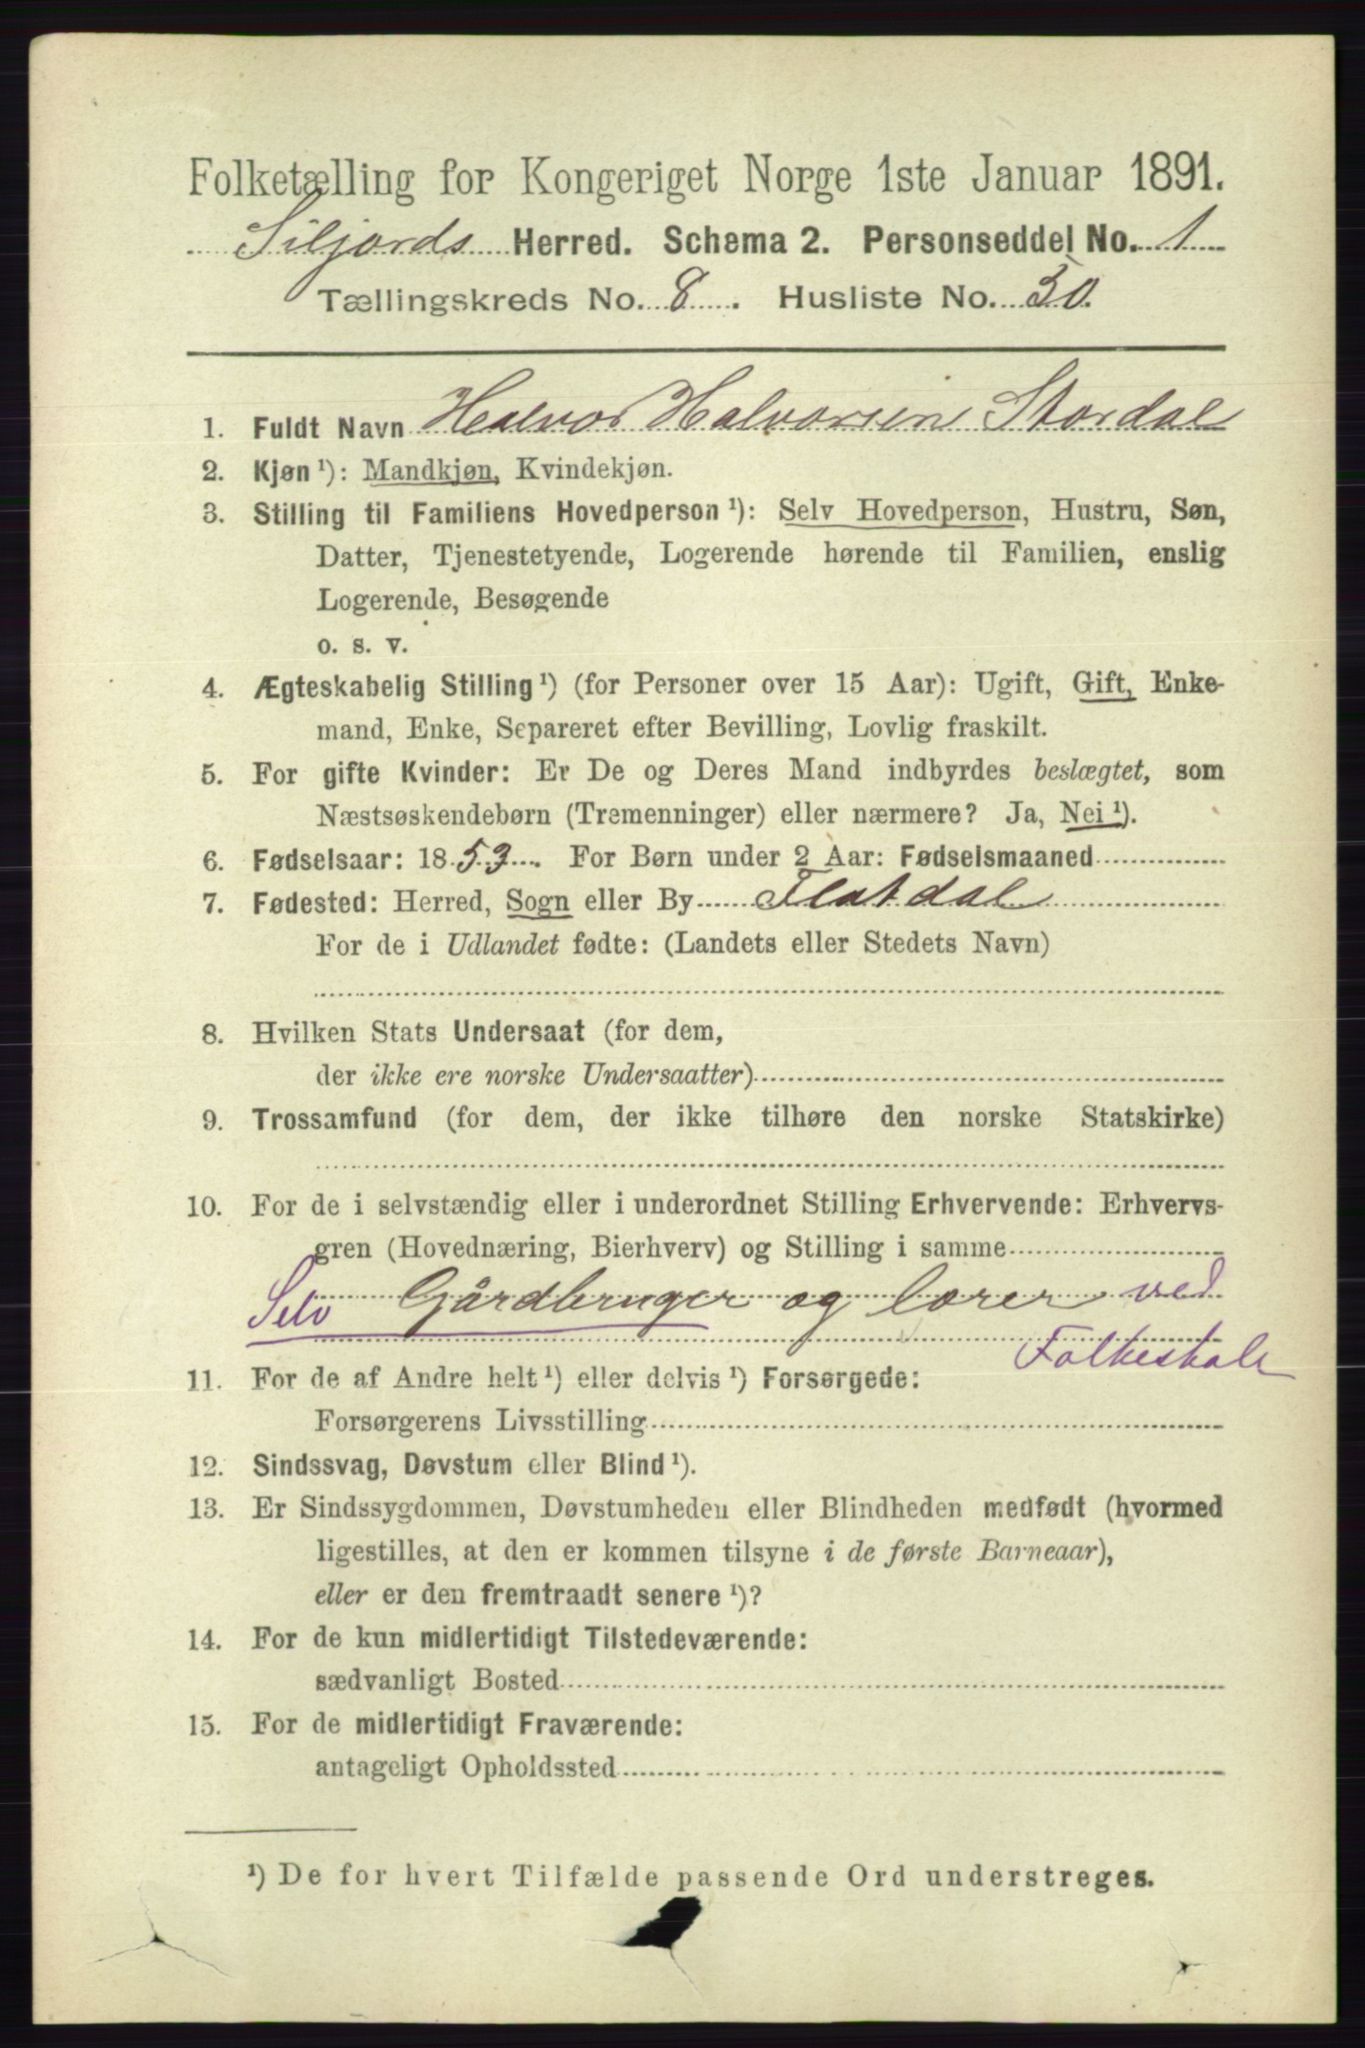 Folketælling for Kongeriget Norge 1ste Januar 1891.
Siljords Herred. Schema 2. Personseddel No. 1
Tællingskreds No. 8. Husliste No. 30.
1. Fuldt Navn Halvor Halvorsen Stordal
2. Kjøn ¹): Mandkjøn, Kvindekjøn.
3. Stilling til Familiens Hovedperson ¹): Selv Hovedperson, Hustru, Søn,
Datter, Tjenestetyende, Logerende hørende til Familien, enslig
Logerende, Besøgende
o. s. v.
4. Ægteskabelig Stilling ¹) (for Personer over 15 Aar): Ugift, Gift, Enke-
mand, Enke, Separeret efter Bevilling, Lovlig fraskilt.
5. For gifte Kvinder: Er De og Deres Mand indbyrdes beslægtet, som
Næstsøskendebørn (Tremenninger) eller nærmere? Ja, Nei ¹).
6. Fødselsaar: 1853. For Børn under 2 Aar: Fødselsmaaned
7. Fødested: Herred, Sogn eller By Flatdal
For de i Udlandet fødte: (Landets eller Stedets Navn)
8. Hvilken Stats Undersaat (for dem,
der ikke ere norske Undersaatter)
9. Trossamfund (for dem, der ikke tilhøre den norske Statskirke)
10. For de i selvstændig eller i underordnet Stilling Erhvervende: Erhvervs-
gren (Hovednæring, Bierhverv) og Stilling i samme
Selv Gårdbruger og lærer ved
Folkeskole
11. For de af Andre helt ¹) eller delvis ¹) Forsørgede:
Forsørgerens Livsstilling
12. Sindssvag, Døvstum eller Blind ¹).
13. Er Sindssygdommen, Døvstumheden eller Blindheden medfødt (hvormed
ligestilles, at den er kommen tilsyne i de første Barneaar),
eller er den fremtraadt senere ¹)?
14. For de kun midlertidigt Tilstedeværende:
sædvanligt Bosted
15. For de midlertidigt Fraværende:
antageligt Opholdssted
¹) De for hvert Tilfælde passende Ord understreges.